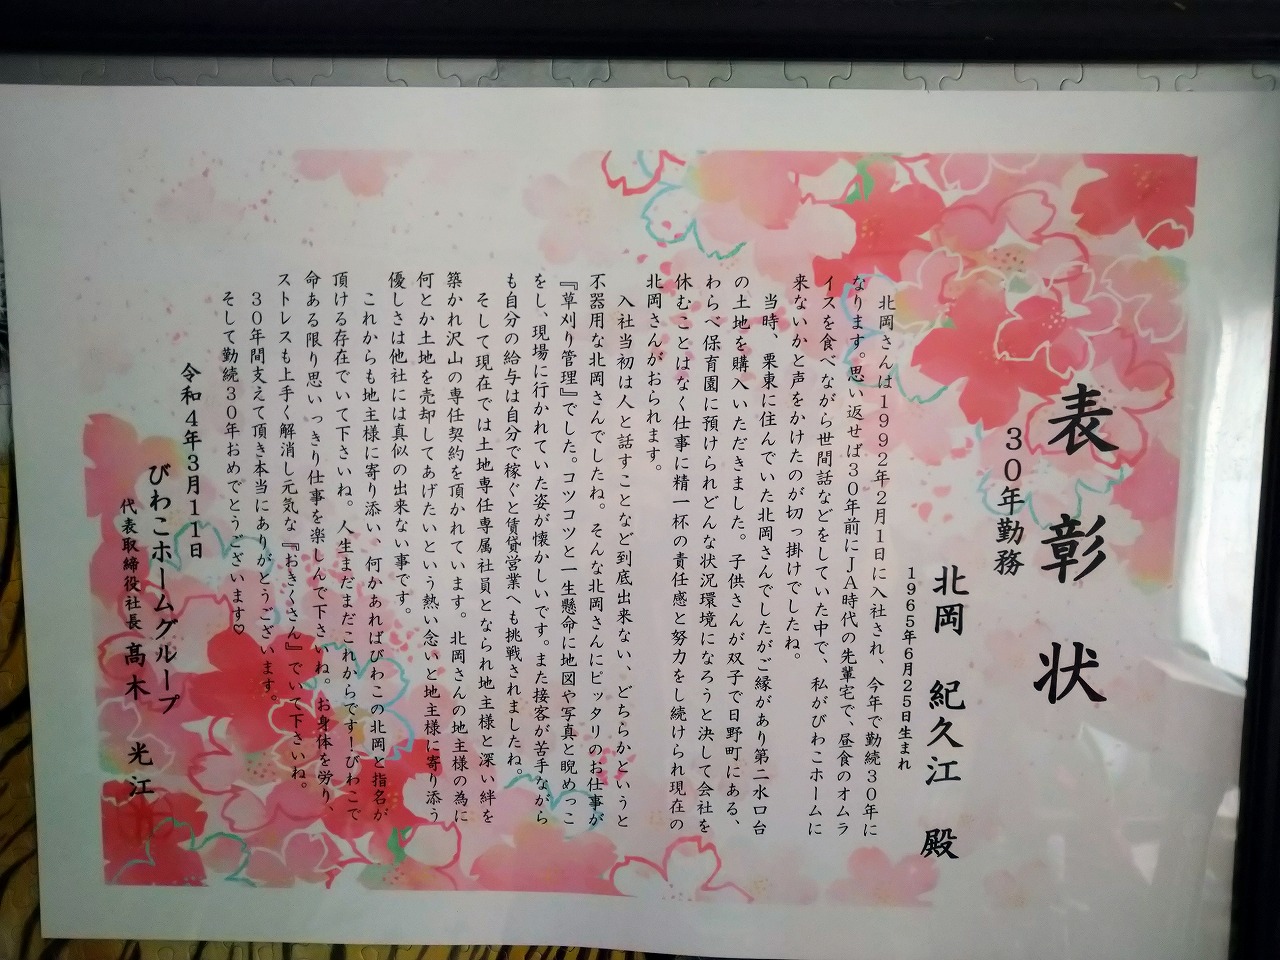 表彰状
30年勤務
北岡 紀久江 殿
1965年6月25日生まれ
北岡さんは1992年2月1日に入社され、今年で勤続30年に
なります。思い返せば30年前にJA時代の先輩宅で、昼食のオムラ
イスを食べながら世間話などをしていた中で、私がびわこホームに
来ないかと声をかけたのが切っ掛けでしたね。
当時、栗東に住んでいた北岡さんでしたがご縁があり第二水口台
の土地を購入いただきました。子供さんが双子で日野町にある、
わらべ保育園に預けられどんな状況環境になろうと決して会社を
休むことはなく仕事に精一杯の責任感と努力をし続けられ現在の
北岡さんがおられます。
入社当初は人と話すことなど到底出来ない、どちらかというと
不器用な北岡さんでしたね。そんな北岡さんにピッタリのお仕事が
『草刈り管理』でした。コツコツと一生懸命に地図や写真と睨めっこ
をし、現場に行かれていた姿が懐かしいです。また接客が苦手ながら
も自分の給与は自分で稼ぐと賃貸営業へも挑戦されましたね。
そして現在では土地専任専属社員となられ地主様と深い絆を
築かれ沢山の専任契約を頂かれています。北岡さんの地主様の為に
何とか土地を売却してあげたいという熱い念いと地主様に寄り添う
優しさは他社には真似の出来ない事です。
これからも地主様に寄り添い、何かあればびわこの北岡と指名が
頂ける存在でいて下さいね。人生まだまだこれからです!びわこで
命ある限り思いっきり仕事を楽しんで下さいね。お身体を労り、
ストレスも上手く解消し元気な『おきくさん』でいて下さいね。
30年間支えて頂き本当にありがとうございます。
そして勤続30年おめでとうございます♡
令和4年3月11日
びわこホームグループ
代表取締役社長 髙木 光江